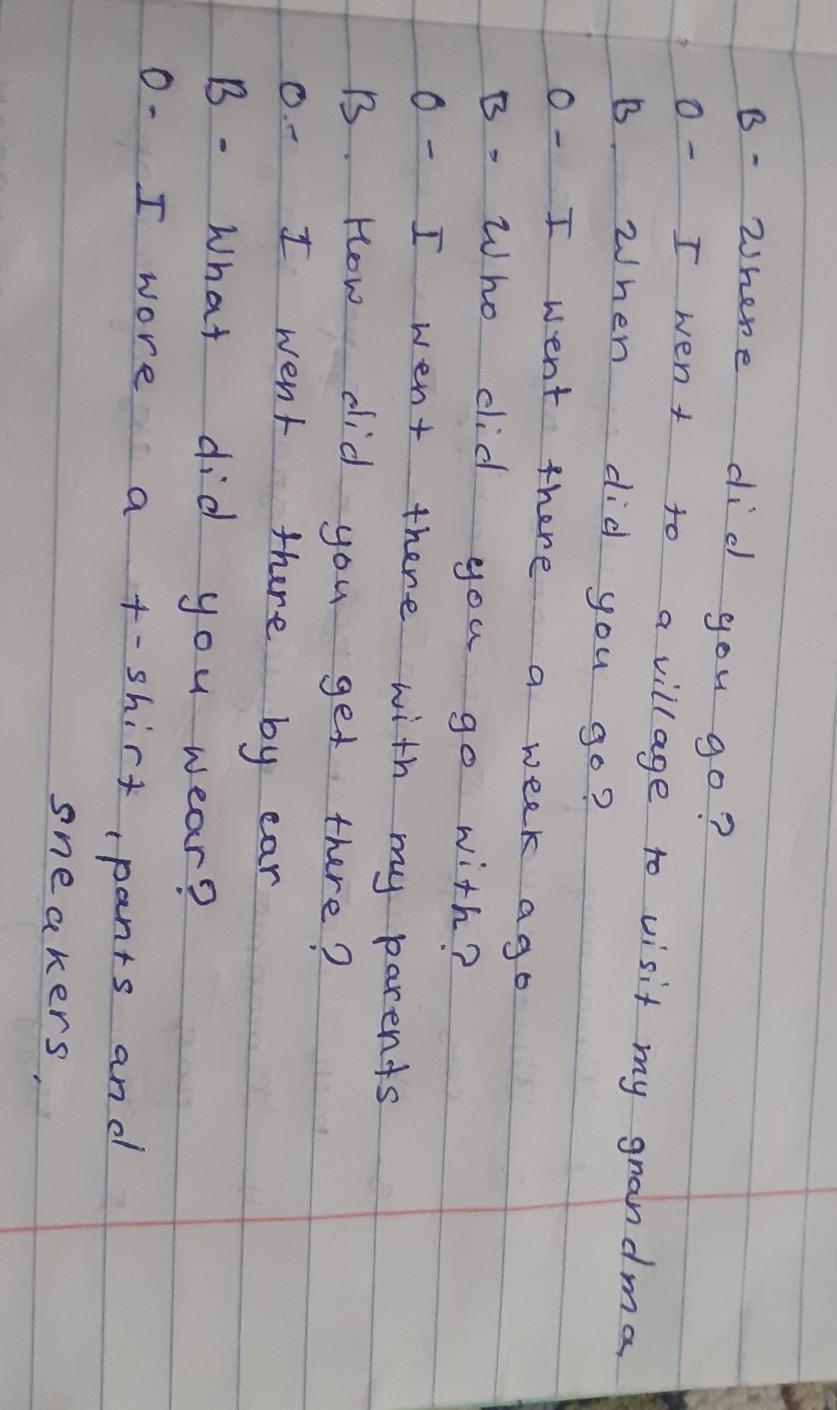 B - Where did you go?
O - I went to a village to visit my grandma
B. When did you go?
O - I went there a week ago
B - Who did you go with?
O - I went there with my parents
B. How did you get there?
O - I went there by car
B - What did you wear?
O - I wore a t-shirt, pants and
sneakers.